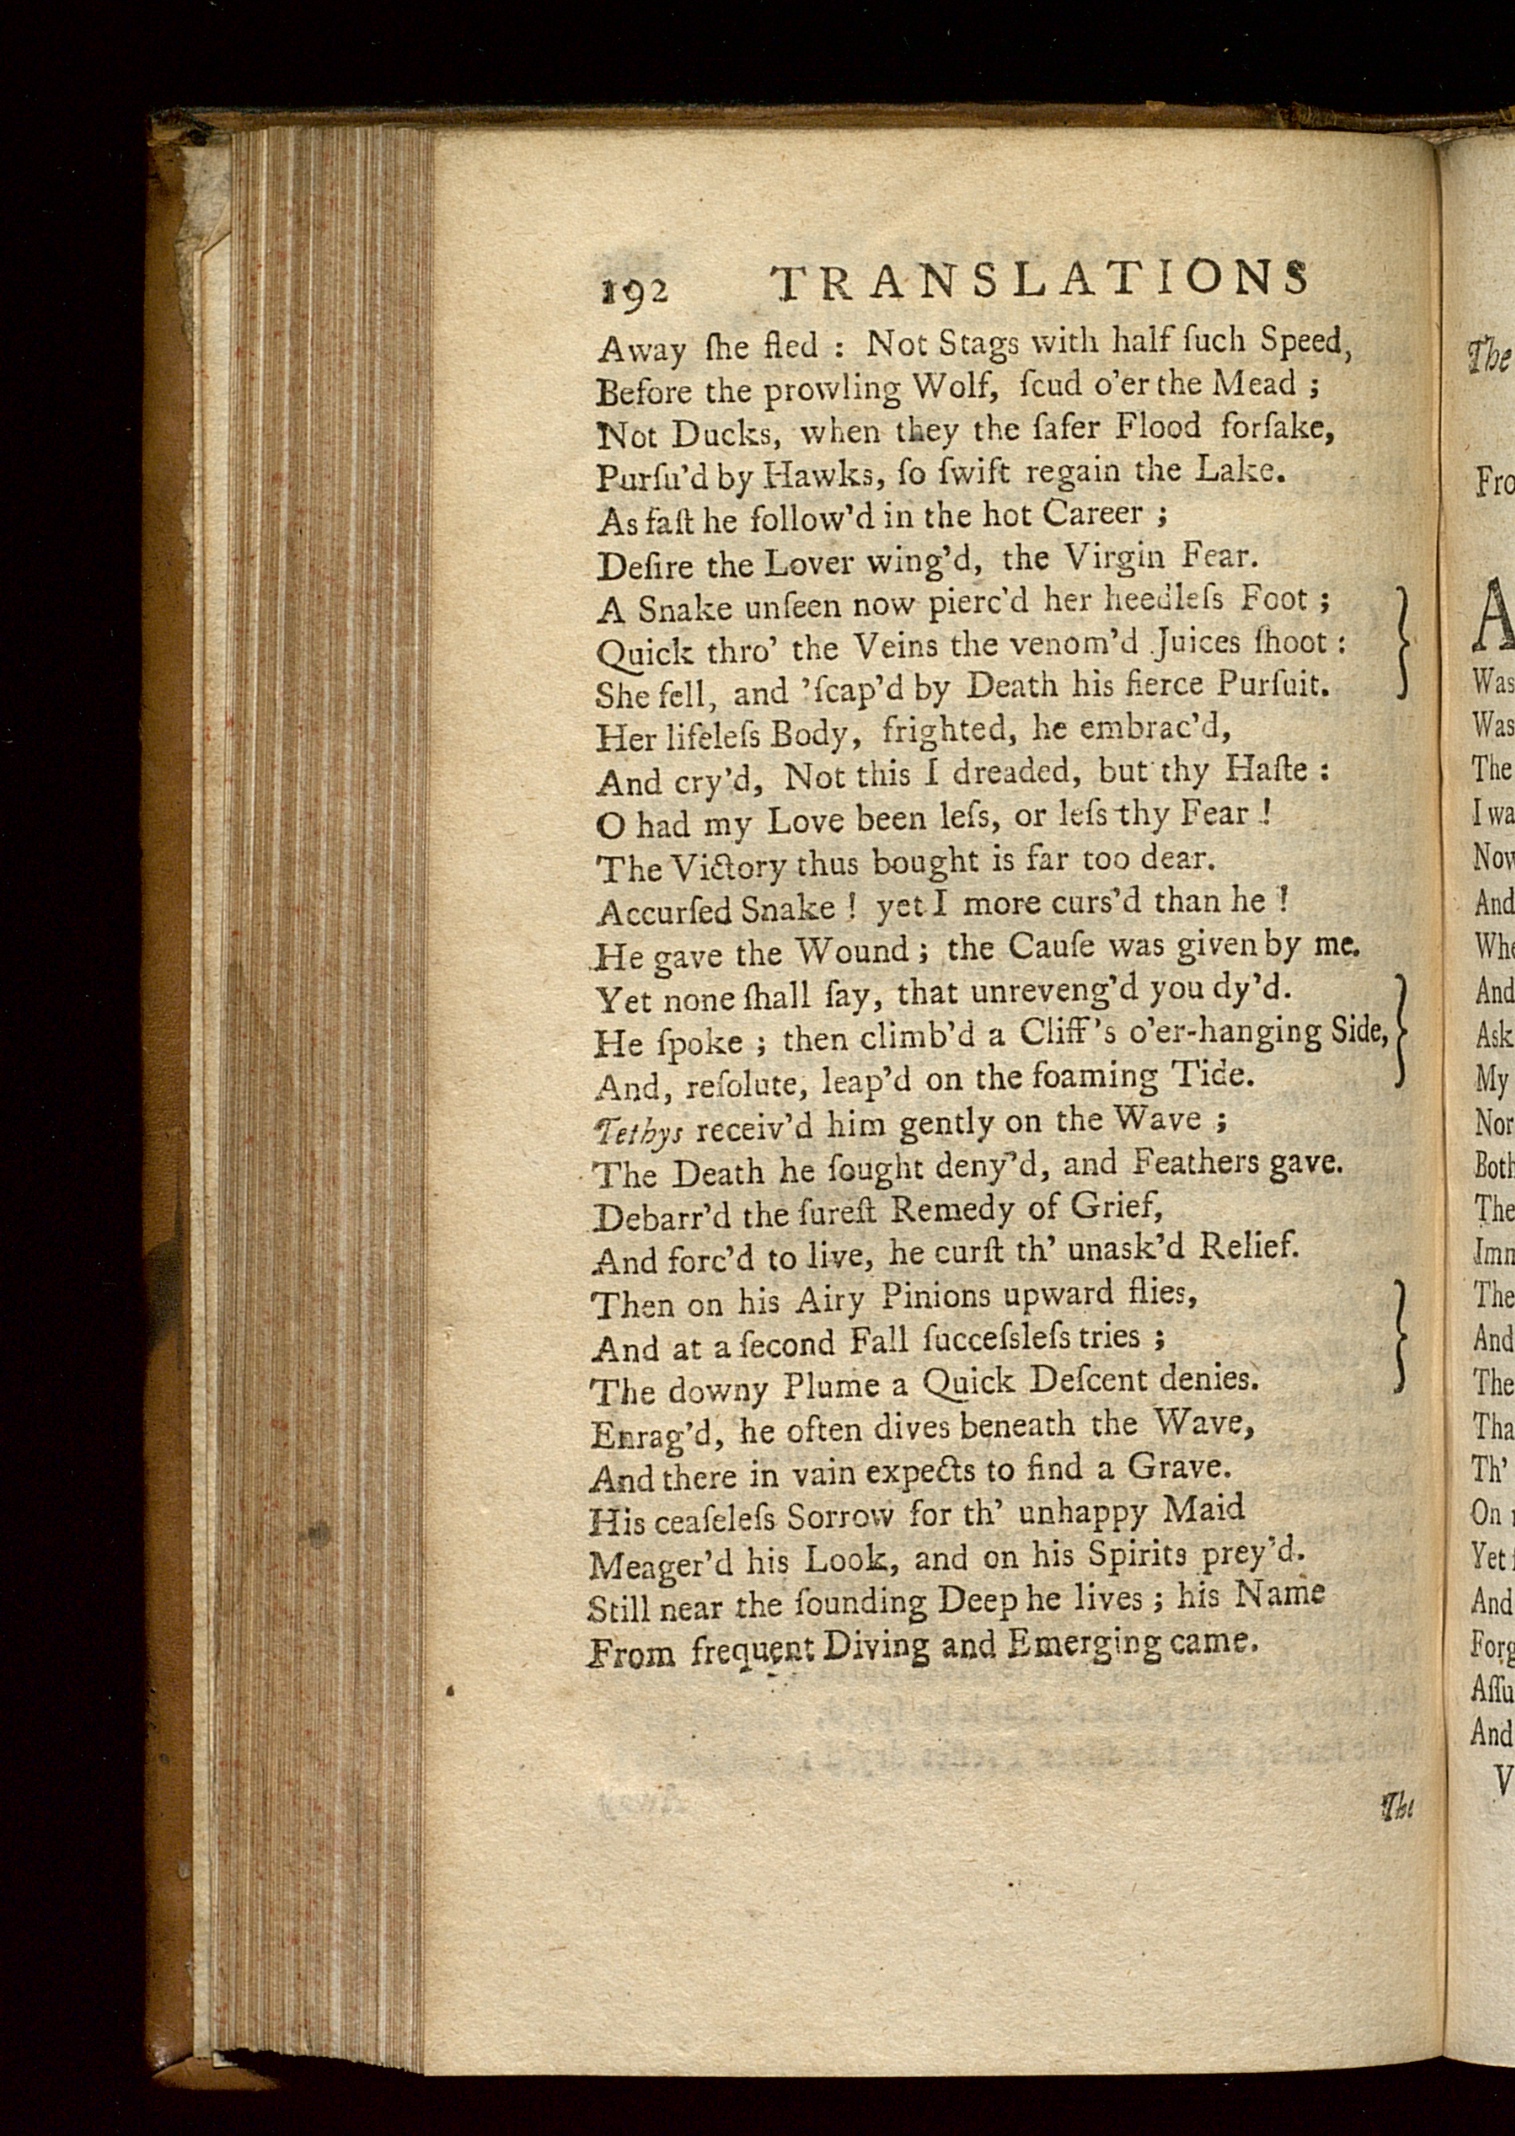 192 TRANSLATIONS
Away ſhe fled : Not Stags with half ſuch Speed,
Before the prowling Wolf, ſcud o'er the Mead ;
Not Ducks, when they the ſafer Flood forſake,
Purſu'd by Hawks, ſo ſwift regain the Lake.
As faſt he follow'd in the hot Career ;
Deſire the Lover wing'd, the Virgin Fear.
A Snake unſeen now pierc'd her heedleſs Foot ;
Quick thro' the Veins the venom'd Juices ſhoot :
She fell, and 'ſcap'd by Death his fierce Purſuit.
Her lifeleſs Body, frighted, he embrac'd,
And cry'd, Not this I dreaded, but thy Haſte :
O had my Love been leſs, or leſs thy Fear !
The Victory thus bought is far too dear.
Accurſed Snake ! yet I more curs'd than he !
He gave the Wound ; the Cauſe was given by me.
Yet none ſhall ſay, that unreveng'd you dy'd.
He ſpoke ; then climb'd a Cliff's o'er-hanging Side,
And, reſolute, leap'd on the foaming Tide.
Tethys receiv'd him gently on the Wave ;
The Death he ſought deny'd, and Feathers gave.
Debarr'd the ſureſt Remedy of Grief,
And forc'd to live, he curſt th' unask'd Relief.
Then on his Airy Pinions upward flies,
And at a ſecond Fall ſucceſsleſs tries ;
The downy Plume a Quick Deſcent denies.
Enrag'd, he often dives beneath the Wave,
And there in vain expects to find a Grave.
His ceaſeleſs Sorrow for th' unhappy Maid
Meager'd his Look, and on his Spirits prey'd.
Still near the ſounding Deep he lives ; his Name
From frequent Diving and Emerging came.
The
The
Fro
A
Was
Was
The
I wa
Now
And
Whe
And
Ask
My
Nor
Both
The
Imm
The
And
The
Tha
Th'
On
Yet
And
Forg
Aſſu
And
V